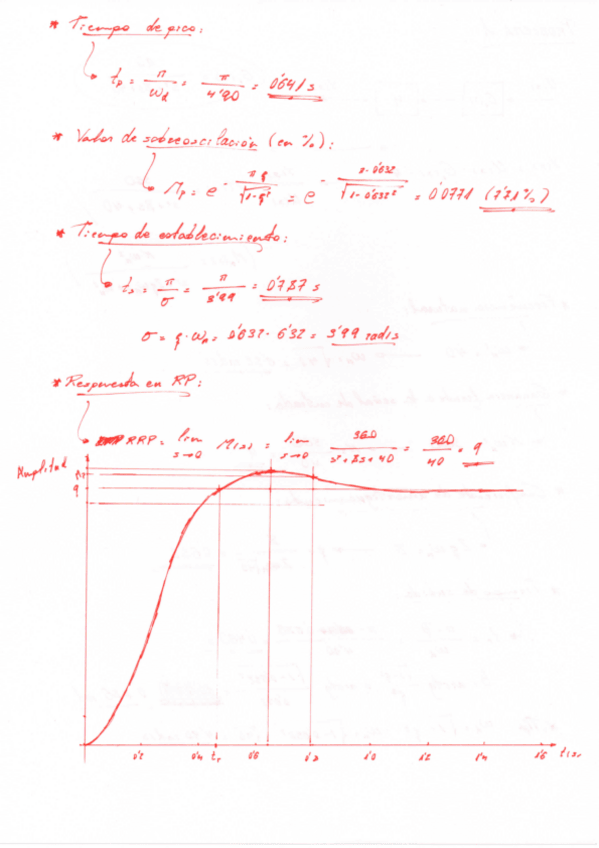 * Tiempo de pico:
tp = π/ωd = π/4'90 = 0'641 s
* Valor de sobreoscilación (en %):
Mp = e^-(πξ/√(1-ξ²)) = e^-(π·0'632/√(1-0'632²)) = 0'0771 (7'71%)
* Tiempo de establecimiento:
ts = π/σ = π/3'99 = 0'787 s
σ = ξ·ωn = 0'632·6'32 = 3'99 rad/s
* Respuesta en RP:
RRP = lim s→0 M(s) = lim s→0 360/(s²+8s+40) = 360/40 = 9
Amplitud
9
0'2 0'4 tr 0'6 0'8 1'0 1'2 1'4 1'6 t(s)